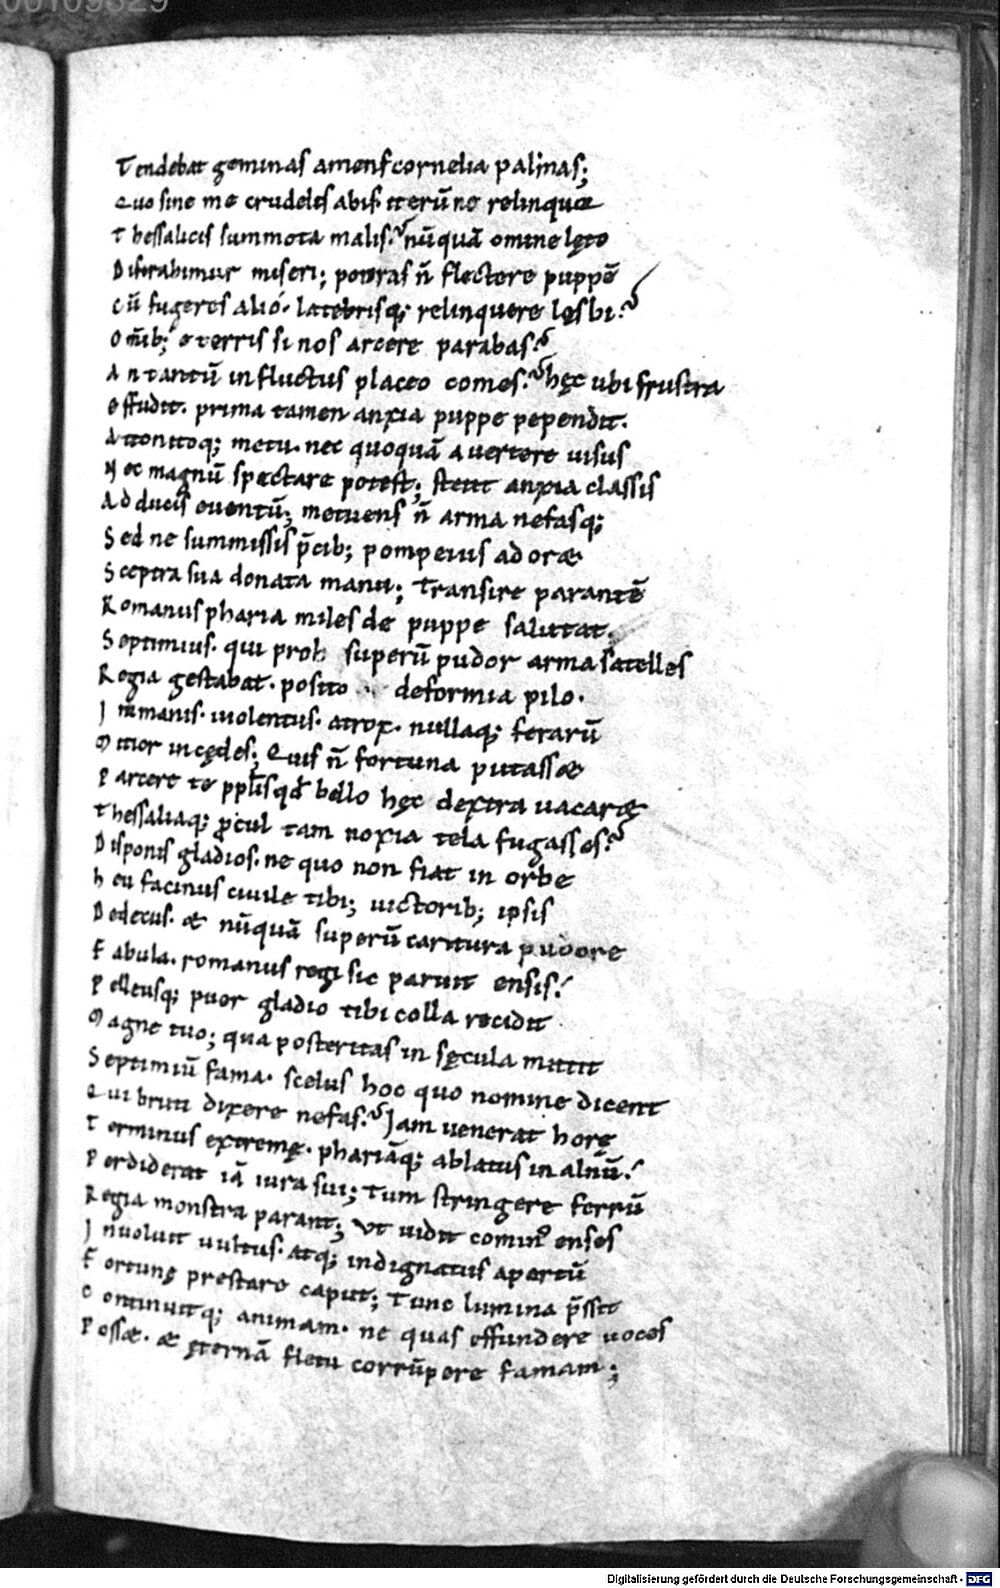 00109329
Tendebat geminas amens cornelia palmas;
Quo sine me crudelis abis? iterũ ne relinquor
Thessalicis summota malis? nũquã omine lęto
Distrahimur miseri; poteras ñ flectere puppẽ
Cũ fugeres alió. latebrisq; relinquere lęsbi?
Om̃ib; e terris si nos arcere parabas?
An tantũ in fluctus placeo comes? hęc ubi frustra
effudit. prima tamen anxia puppe pependit.
Attonitoq; metu. nec quoquã avertere uisus
Nec magnũ spectare potest; stetit anxia classis
Ad ducis euentũ; metuens ñ arma nefasq;
Sed ne summissis p̃cib; pompeius adoræ
Sceptra sua donata manu; Transire parantẽ
Romanus pharia miles de puppe salutat.
Septimius. qui proh superũ pudor arma satelles
Regia gestabat. posito deformia pilo.
Immanis. uiolentus. atrox. nullaq; ferarũ
Mitior in cędes; Quis ñ fortuna putassæ
Parcere te pplis qđ bello hęc dextra uacaræ
Thessaliaq; p̃cul tam noxia tela fugasses?
Disponis gladios. ne quo non fiat in orbe
heu facinus ciuile tibi; uictorib; ipsis
Dedecus. æ nũquã superũ caritura pudore
Fabula. romanus regi sic paruit ensis!
Pelleusq; puer gladio tibi colla recidit
Magne tuo; qua posteritas in sęcula mittit
Septimiũ fama. scelus hoc quo nomine dicent
Qui bruti dixere nefas? Jam uenerat horę
Terminus extremę. phariãq; ablatus in alnũ!
Perdiderat iã iura sui; Tum stringere ferrũ
Regia monstra parant; Vt uidit comin' enses
Inuoluit uultus. atq; indignatus apertũ
Fortunę prestare caput; Tunc lumina p̃ssit
Continuitq; animam. ne quas effundere uoces
Possæ. æ ęternã fletu corrũpere famam;
Digitalisierung gefördert durch die Deutsche Forschungsgemeinschaft - DFG